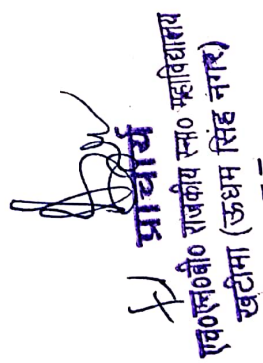 प्राचार्य
एच०एन०बी० राजकीय स्ना० महाविद्यालय
खटीमा (ऊधम सिंह नगर)